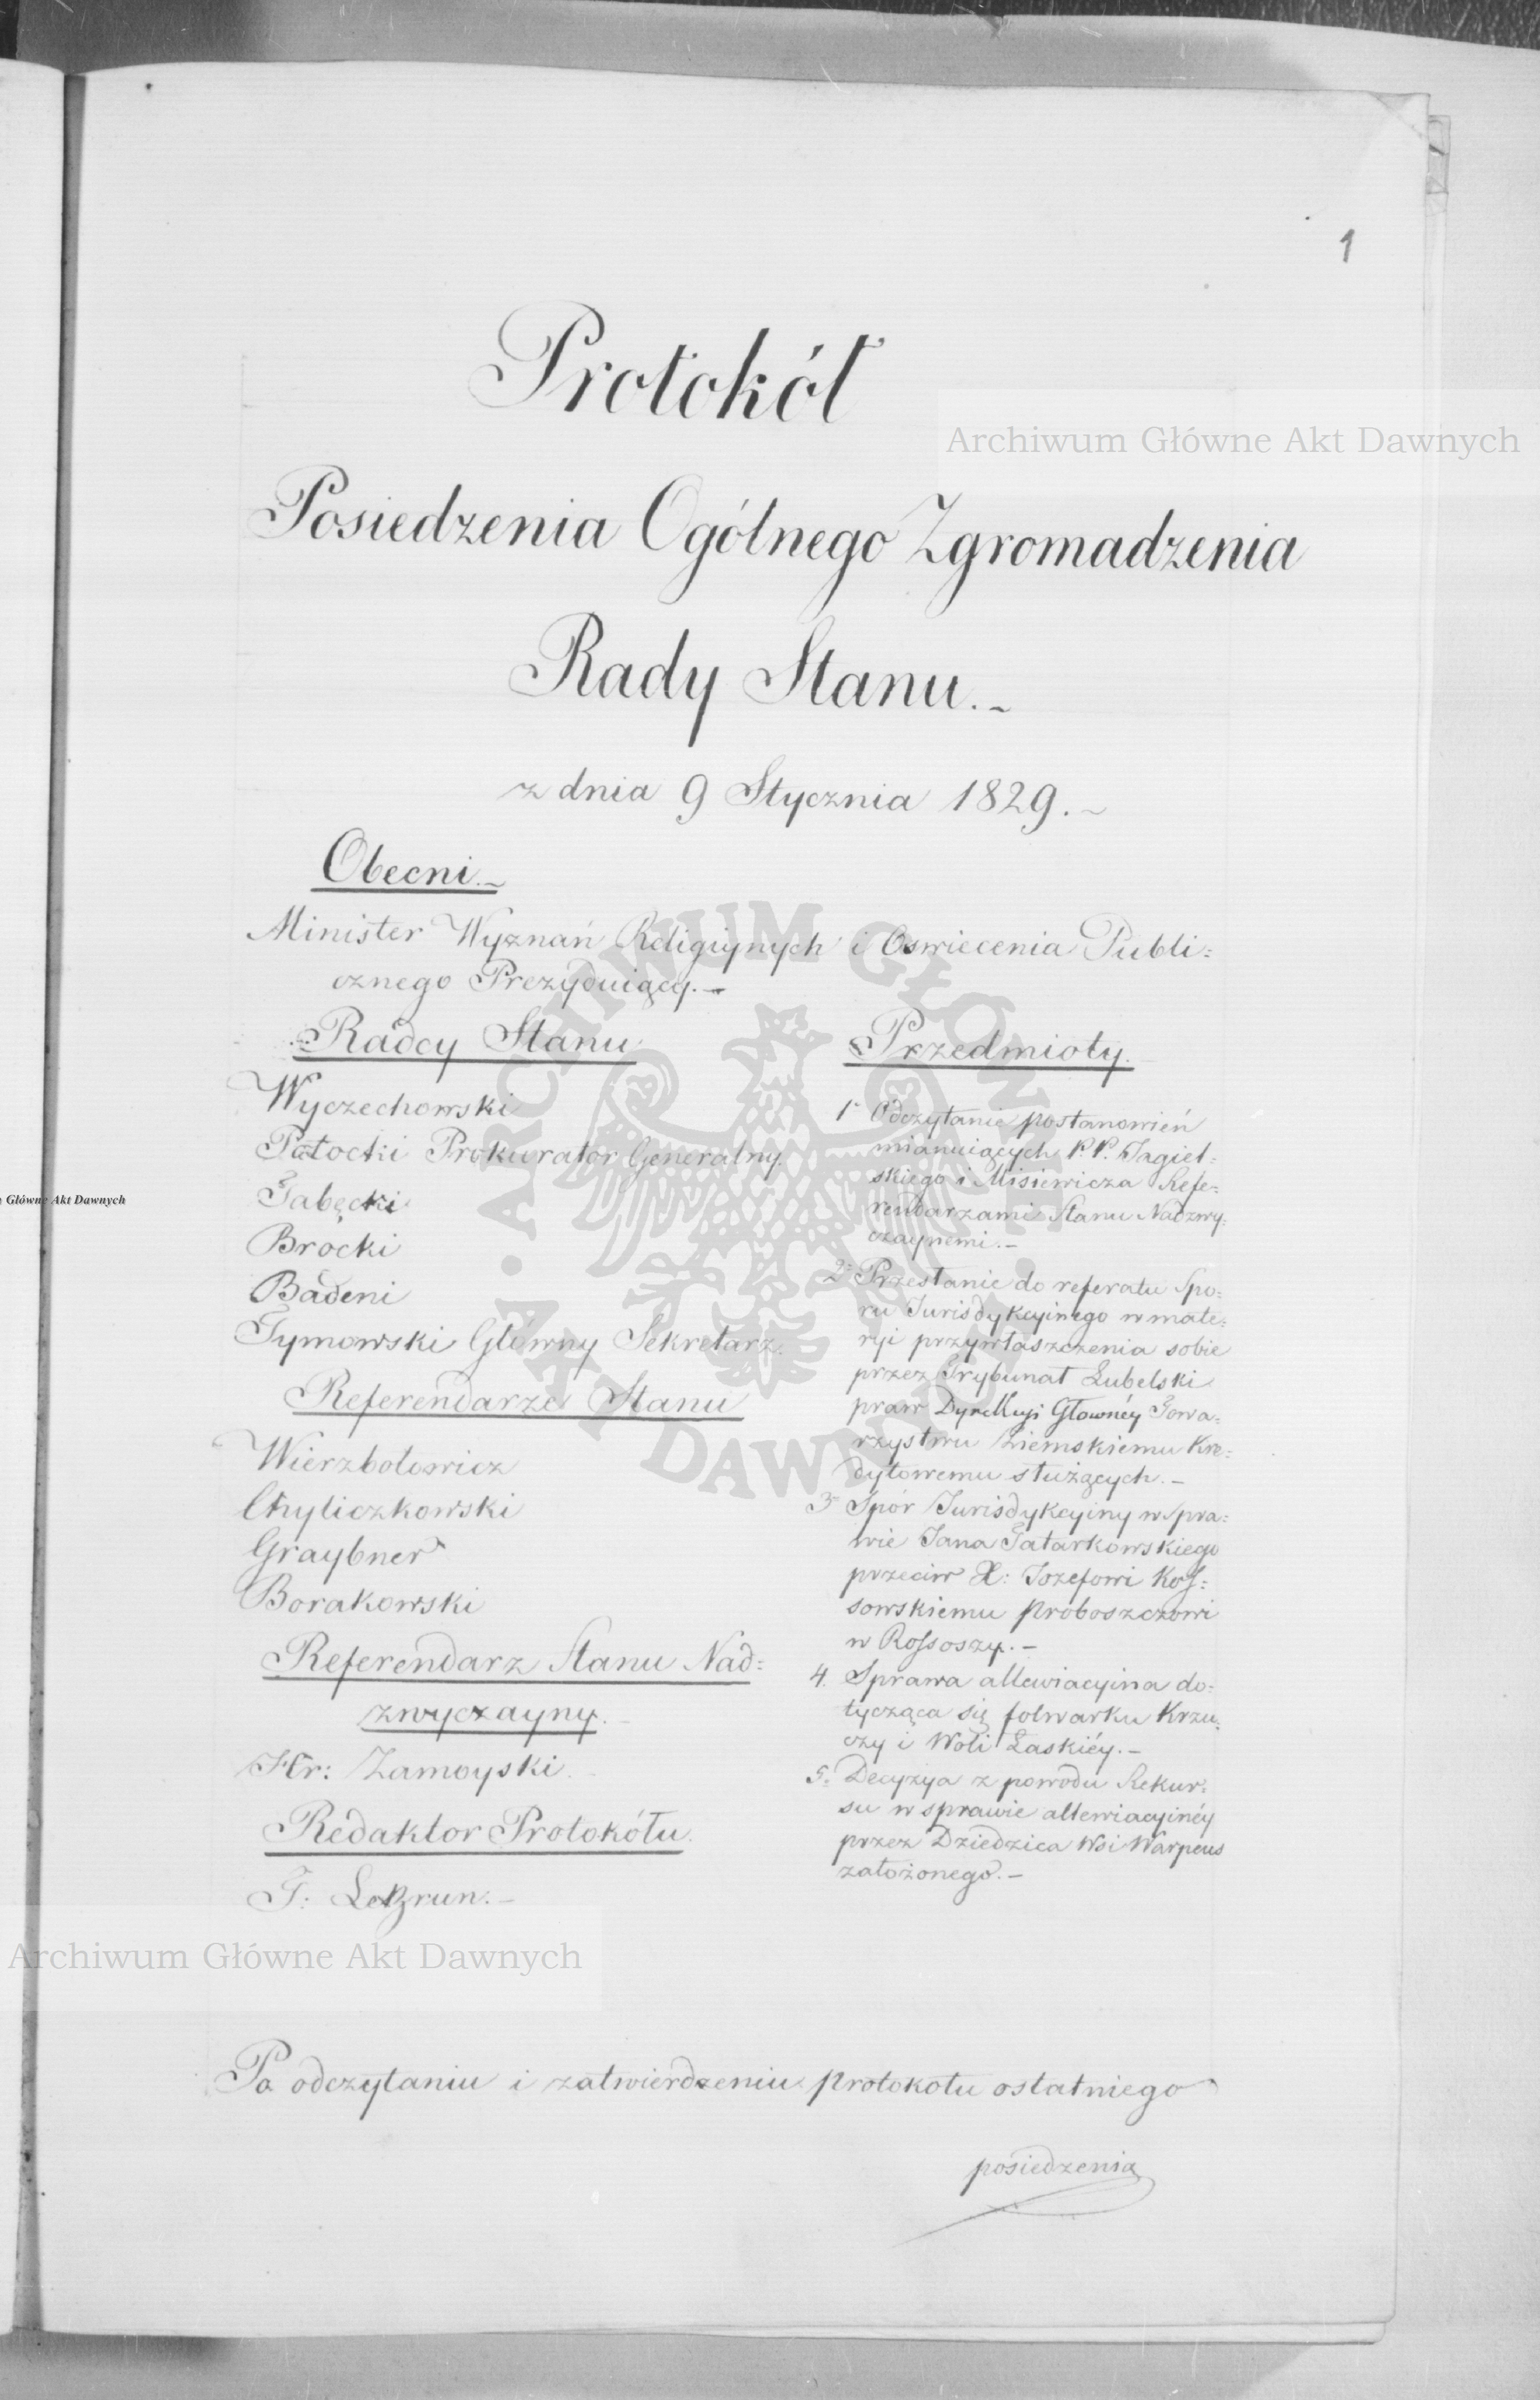 1
Protokół
Posiedzenia Ogólnego Zgromadzenia
Rady Stanu.~
z dnia 9 Stycznia 1829.~
Obecni.~
Minister Wyznań Religiynych i Oswiecenia Publi=
cznego Prezyduiący.~
Radcy Stanu
Wyczechowski
Potocki Prokurator Generalny.
Tabęcki
Brocki
Badeni
Tymowski Głowny Sekretarz.
Referendarze Stanu
Wierzbołowicz
Chyliczkowski
Graybner
Borakowski
Referendarz Stanu Nad=
zwyczayny.
Hr: Zamoyski.
Redaktor Protokółu.
F: LeBrun.–
Przedmioty.
1º Odczytanie postanowień
mianuiących P.P. Jagiel=
skiego i Misiewicza Refe=
rendarzami Stanu Nadzwy=
czaynemi.–
2º Przesłanie do referatu Spo=
ru Jurisdykcyinego w mate=
ryi przywłaszczenia sobie
przez Trybunał Lubelski
praw Dyrekcyi Głownéy Towa=
rzystwu Ziemskiemu Kre=
dytowemu służących.–
3º Spór Jurisdykcyiny w spra=
wie Jana Tatarkowskiego
przeciw X: Jozefowi Kos=
sowskiemu proboszczowi
w Rossoszy.–
4. Sprawa allewiacyina do=
tycząca się folwarku Krzu=
czy i Woli Łaskiéy.–
5. Decyzya z powodu Rekur=
su w sprawie allewiacyinéy
przez Dziedzica Wsi Warpens
założonego.–
Po odczytaniu i zatwierdzeniu protokołu ostatniego
posiedzenia
Archiwum Główne Akt Dawnych
Główne Akt Dawnych
ARCHIWUM GŁÓWNE
AKT DAWNYCH
Archiwum Główne Akt Dawnych